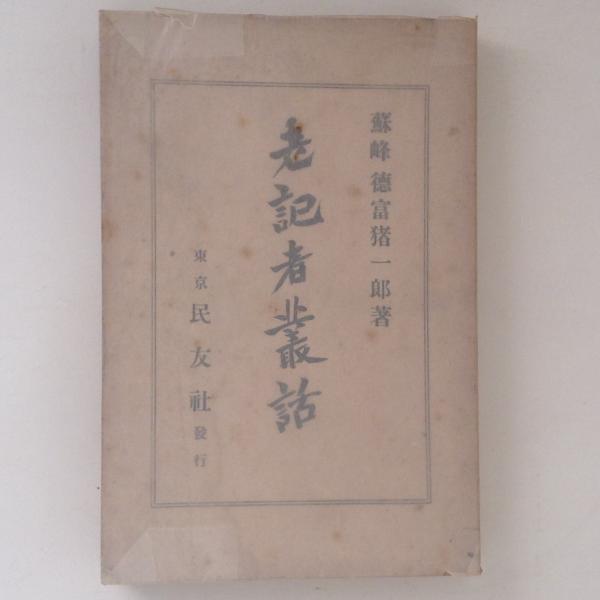 蘇峰 德富猪一郎著
老記者叢話
東京 民友社發行